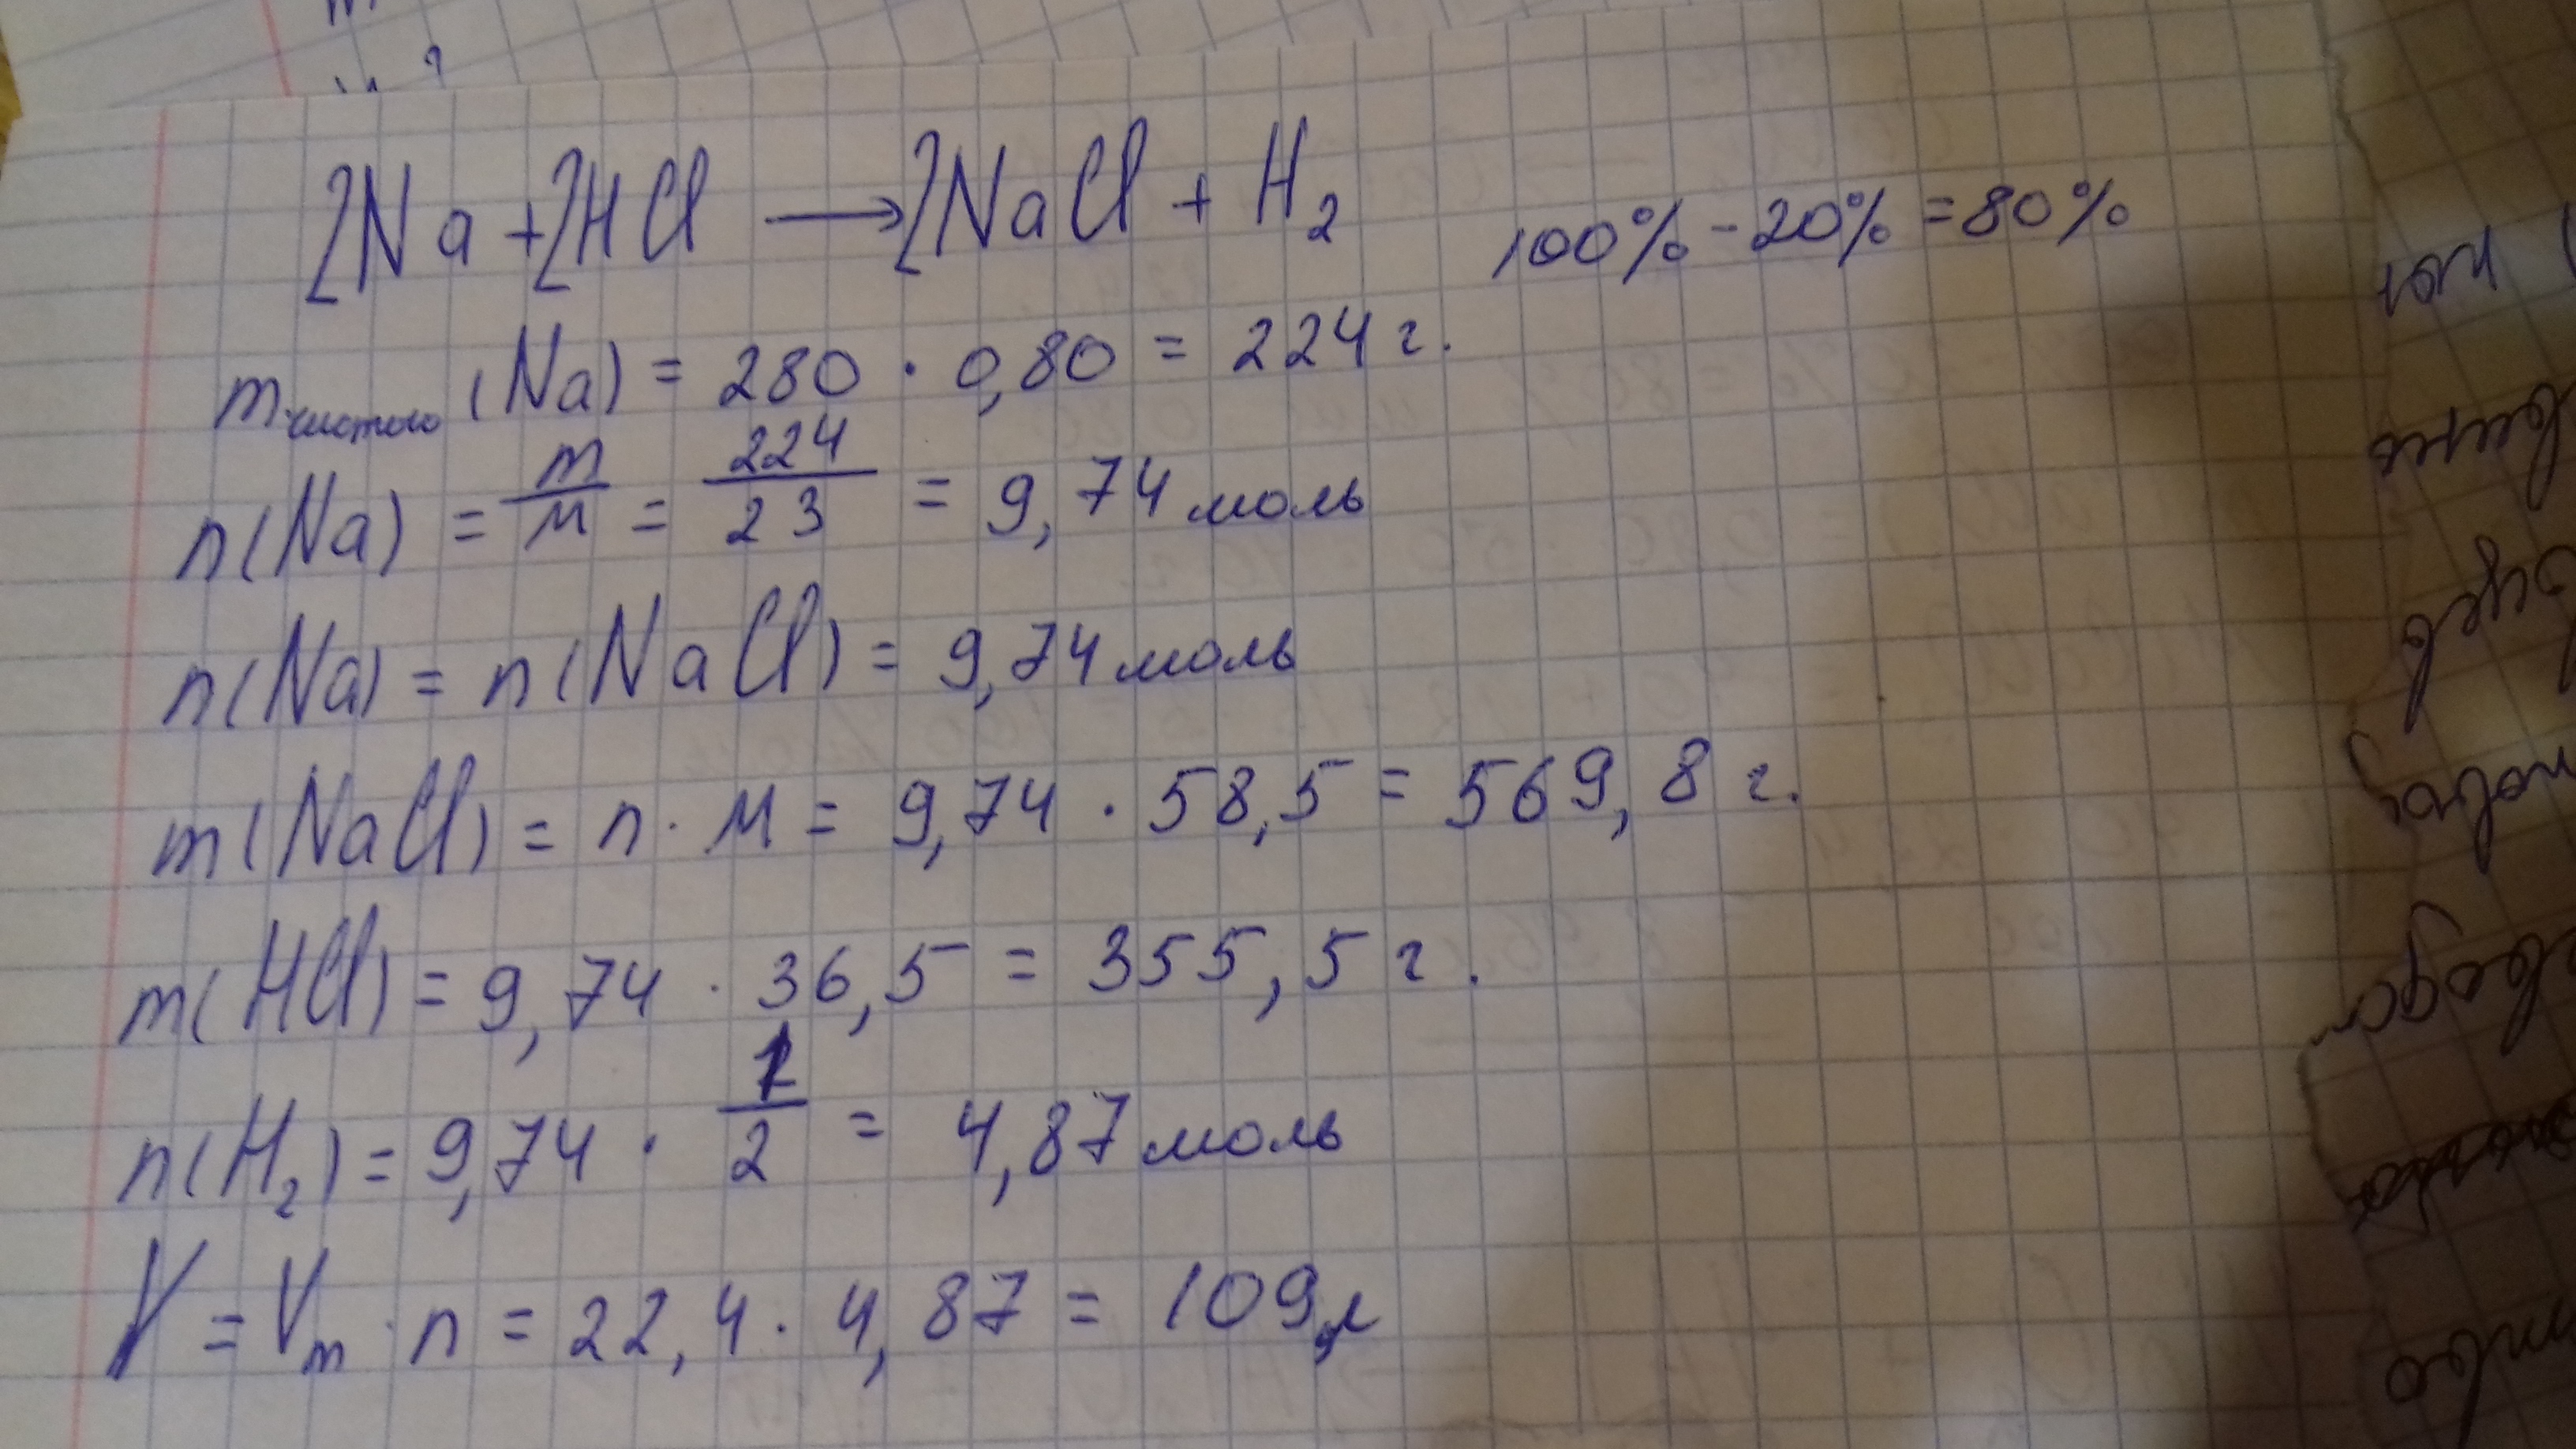 2Na + 2HCl → 2NaCl + H₂
100% - 20% = 80%
m чистого (Na) = 280 · 0,80 = 224 г.
n(Na) = m/M = 224/23 = 9,74 моль
n(Na) = n(NaCl) = 9,74 моль
m(NaCl) = n · M = 9,74 · 58,5 = 569,8 г.
m(HCl) = 9,74 · 36,5 = 355,5 г.
n(H₂) = 9,74 · 1/2 = 4,87 моль
V = Vm · n = 22,4 · 4,87 = 109 л